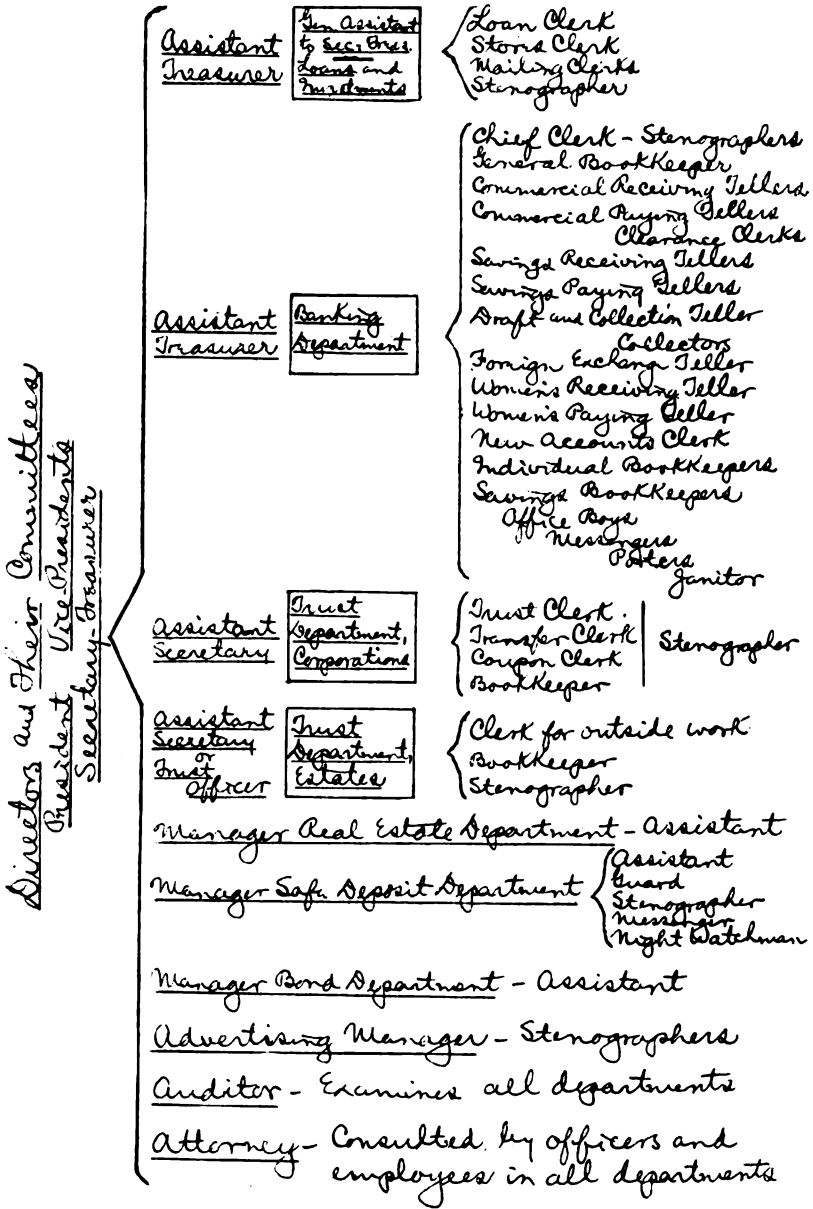 Directors and Their Committees
President Vice-Presidents
Secretary-Treasurer
Assistant
Treasurer
Gen Assistant
to Sec-Treas.
Loans and
Investments
Loan Clerk
Stores Clerk
Mailing Clerks
Stenographer
Assistant
Treasurer
Banking
Department
Chief Clerk - Stenographers
General BookKeeper
Commercial Receiving Tellers
Commercial Paying Tellers
Clearance Clerks
Savings Receiving Tellers
Savings Paying Tellers
Draft and Collection Teller
Collectors
Foreign Exchang Teller
Women's Receiving Teller
Women's Paying Teller
New Accounts Clerk
Individual BookKeepers
Savings BookKeepers
Office Boys
Messengers
Porters
Janitor
Assistant
Secretary
Trust
Department,
Corporations
Trust Clerk.
Transfer Clerk
Coupon Clerk
BookKeeper
Stenographer
Assistant
Secretary
or
Trust
Officer
Trust
Department,
Estates
Clerk for outside work
BookKeeper
Stenographer
Manager Real Estate Department - Assistant
Manager Safe Deposit Department
Assistant
Guard
Stenographer
Messenger
Night Watchman
Manager Bond Department - Assistant
Advertising Manager - Stenographers
Auditor - Examines all departments
Attorney - Consulted by officers and
employees in all departments